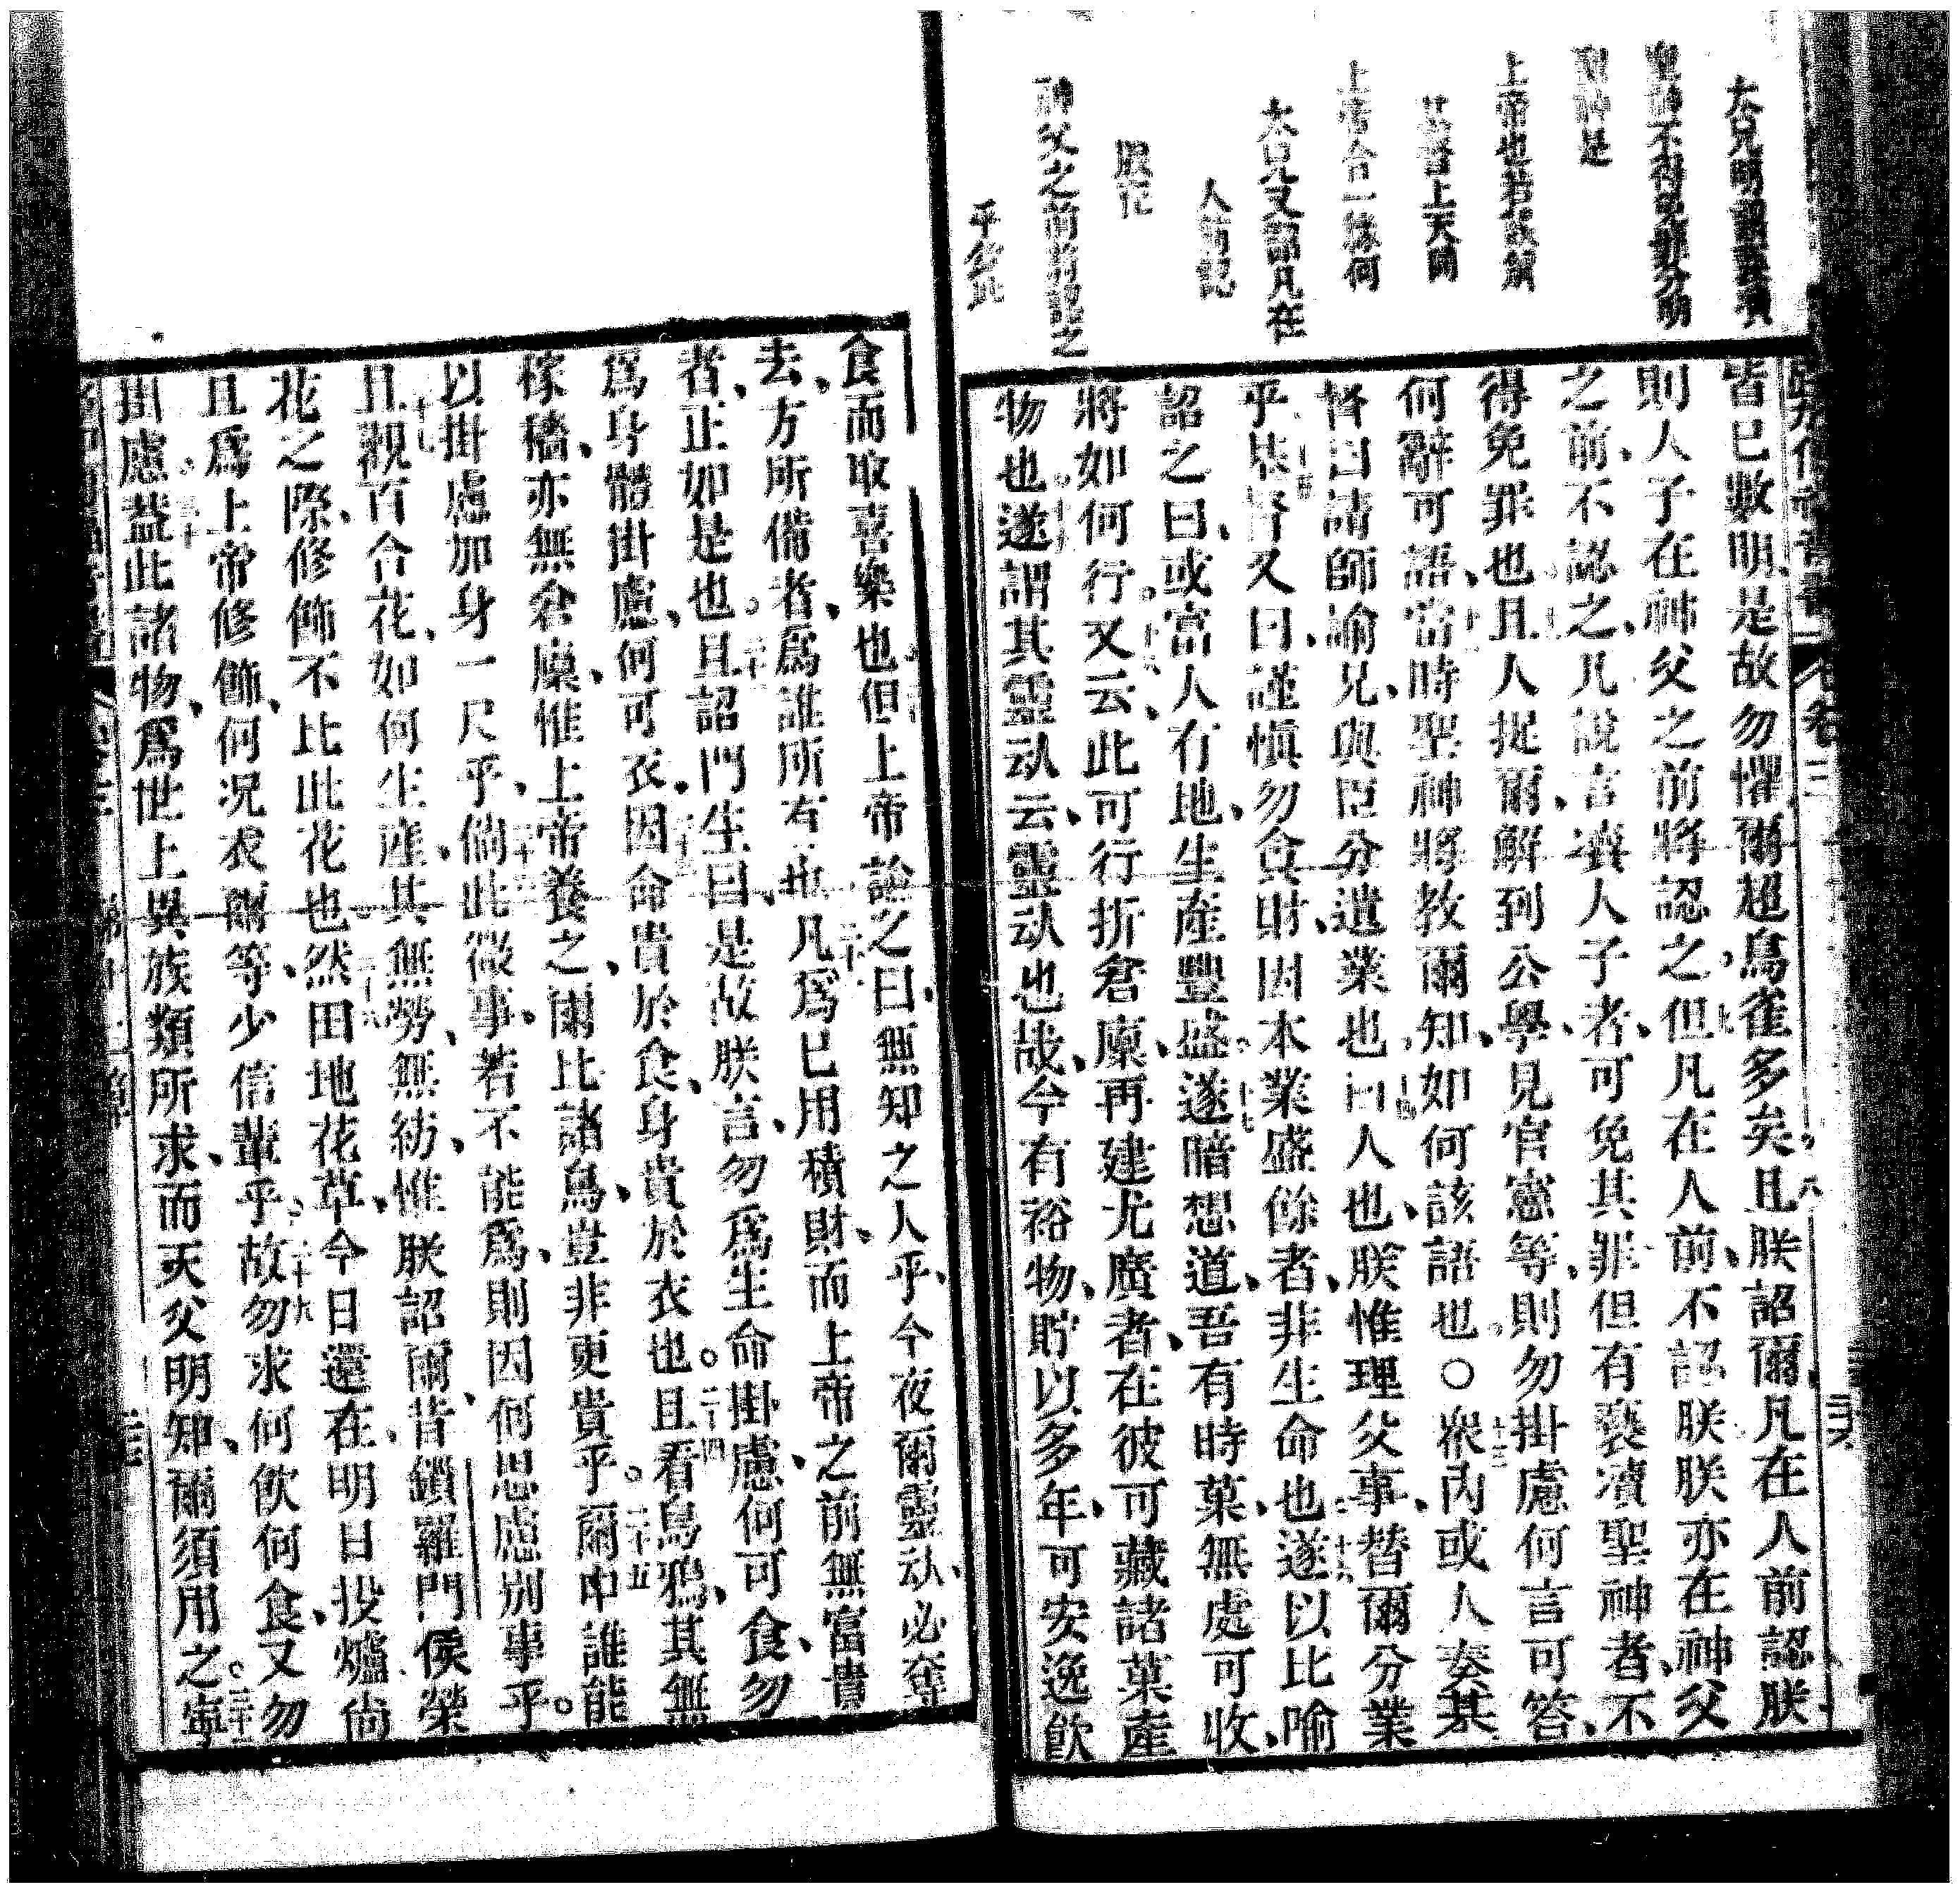 大兄明詔
聖神不得免罪分明
聖神是
上帝也若
基督上天同
上帝合一緣何
大兄又詔凡在
人前認
朕在
神父之前前認之
乎欽此
皆已數明是故勿懼爾超鳥雀多矣且朕詔爾凡在人前認朕
則人子在神父之前將認之但凡在人前不認朕朕亦在神父
之前不認之凡說言瀆人子者可免其罪但有褻瀆聖神者不
得免罪也且人捉爾解到公學見官憲等則勿掛慮何言可答
何辭可語當時聖神將教爾知如何該語也○眾內或人奏基
督曰請師諭兄與臣分遺業也曰人也朕惟理父事替爾分業
乎基督又曰謹慎勿貪財因本業盛餘者非生命也遂以比喻
詔之曰或富人有地生產豐盛遂暗想道吾有時菓無處可收
將如何行又云此可行折倉廩再建尤廣者在彼可藏諸菓產
物也遂謂其靈䰟云靈䰟也哉今有裕物貯以多年可安逸飲
食而取喜樂也但上帝諭之曰無知之人乎今夜爾靈䰟必奪
去方所備者爲誰所有也凡爲已用積財而上帝之前無富貴
者正如是也且詔門生曰是故朕言勿爲生命掛慮何可食勿
爲身體掛慮何可衣因命貴於食身貴於衣也且看鳥鴉其無
稼穡亦無倉廩惟上帝養之爾比諸鳥豈非更貴乎爾中誰能
以掛慮加身一尺乎倘此微事若不能爲則因何思慮別事乎
且觀百合花如何生產其無勞無紡惟朕詔爾昔鎖羅門侯榮
花之際修飾不比此花也然田地花草今日還在明日投爐尚
且爲上帝修飾何况衣爾等少信輩乎故勿求何飲何食又勿
掛慮葢此諸物爲世上異族類所求而天父明知爾須用之寧